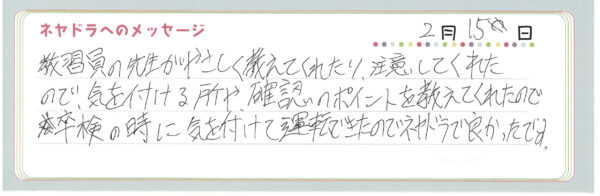 ネヤドラへのメッセージ
2月15日
教習員の先生がやさしく教えてくれたり、注意してくれた
ので、気を付ける所や、確認のポイントを教えてくれたので
卒検の時に気を付けて運転できたのでネヤドラで良かったです。